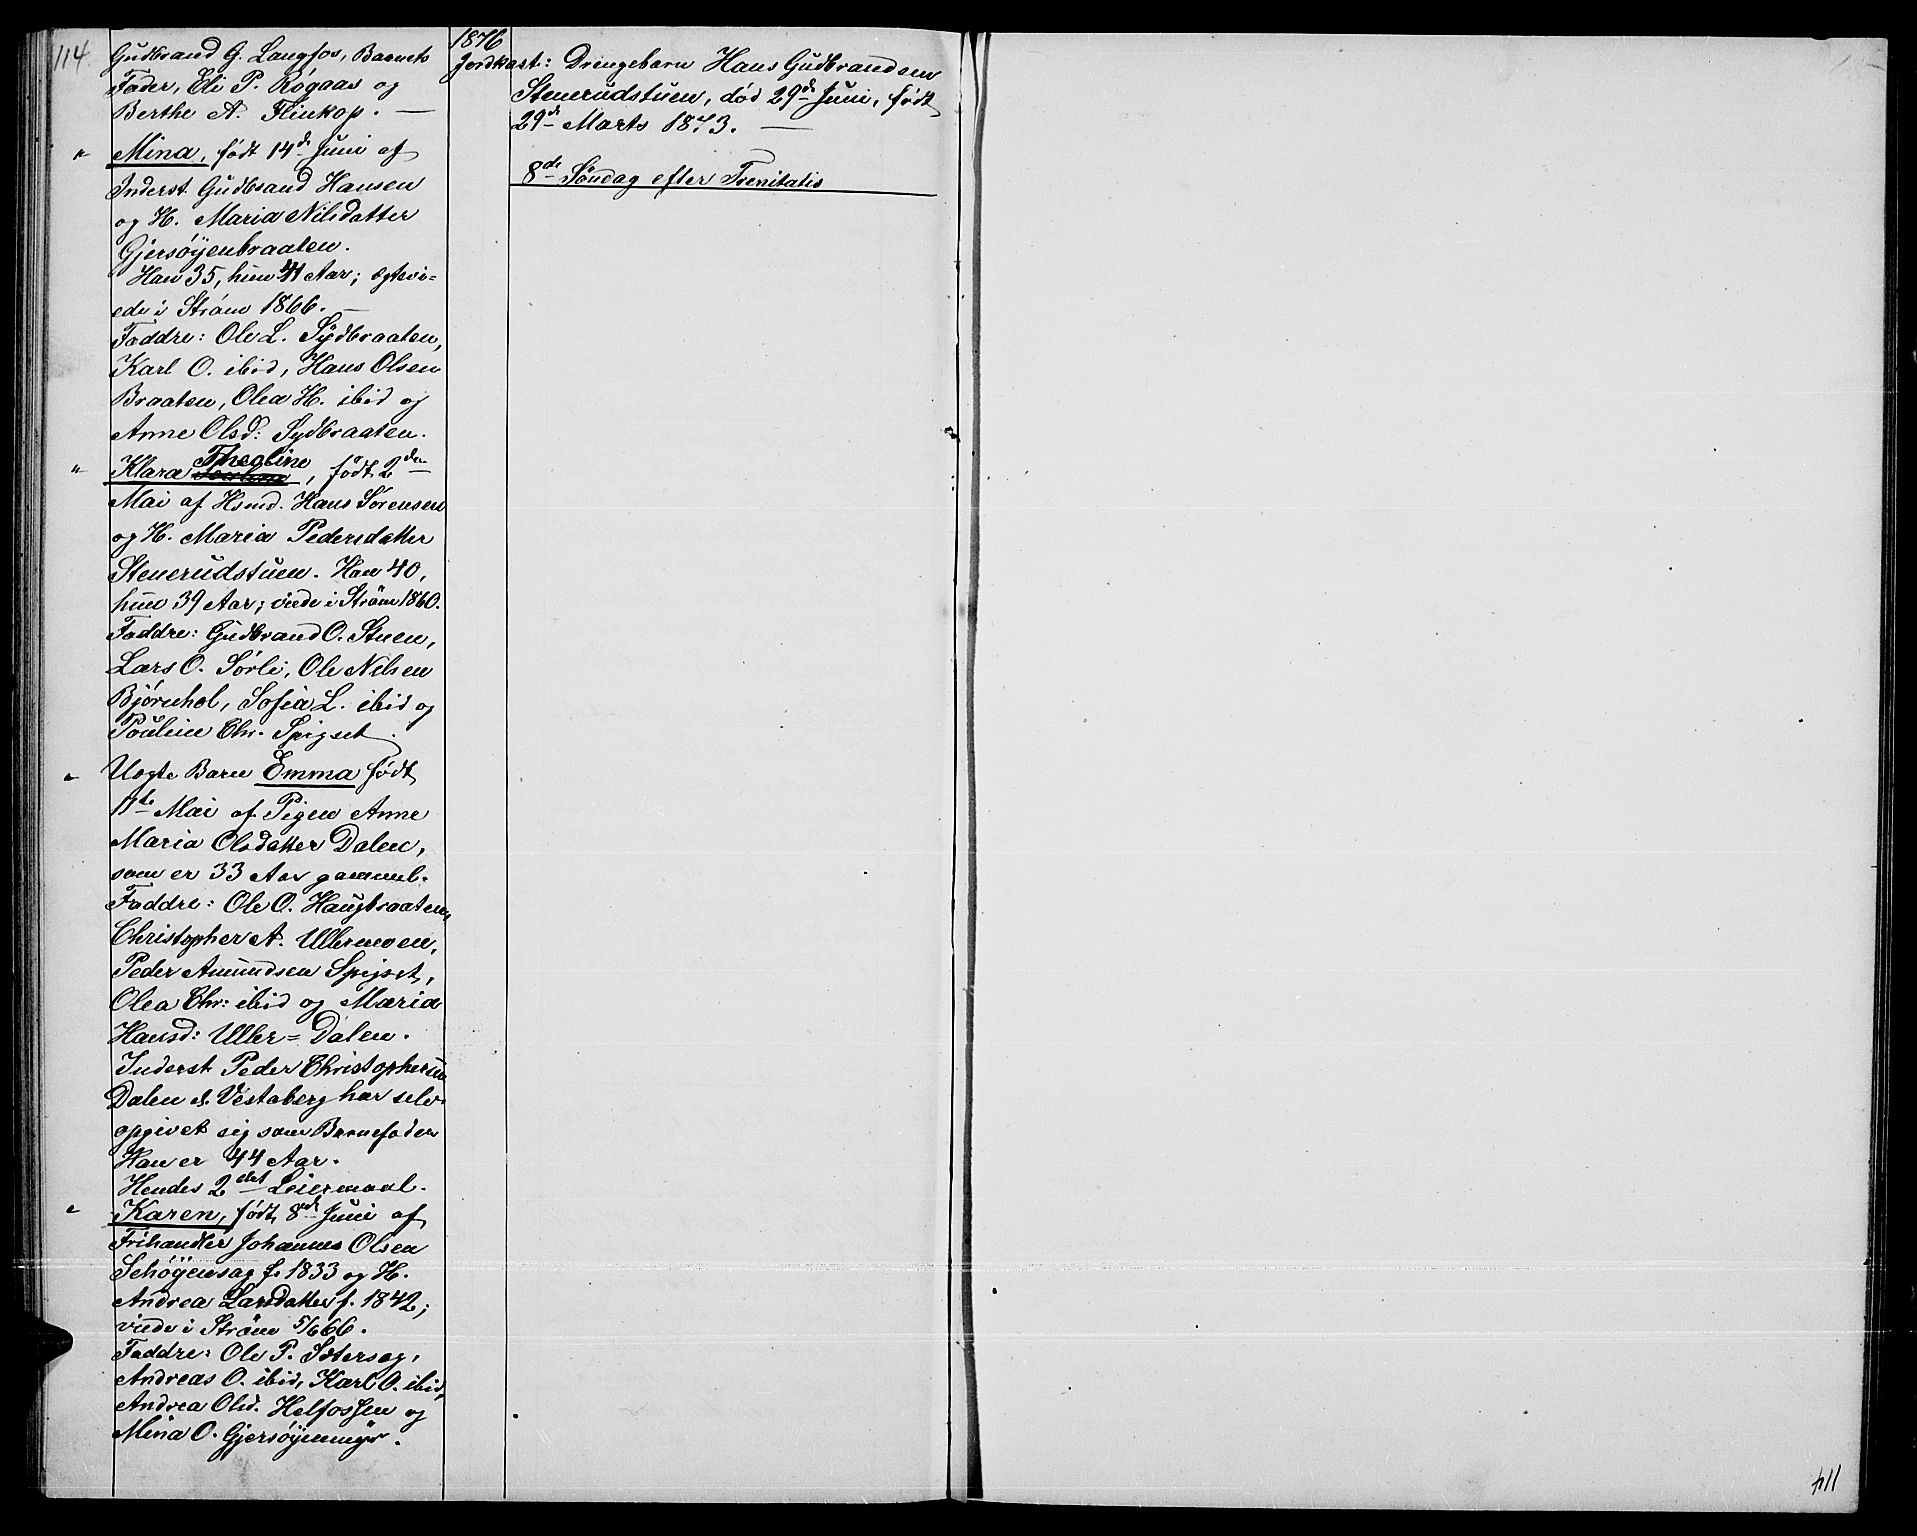 114.
Gudbrand G. Langfos, Barnets
Fader, Eli P. Rógaas og
Berthe A. Flinkop. —
" Mina, født 14de Juni af
Inderst Gudbrand Hansen
og H. Maria Nilsdatter
Gjersøyenbraaten.
Han 35, hun 41 Aar; ægtevi-
ede i Strøm 1866. —
Faddre: Ole L. Sydbraaten,
Karl O. ibid, Hans Olsen
Braaten, Olea H. ibid og
Anne Olsd: Sydbraaten.
" Klara Theoline, født 2den
Mai af Hsmd. Hans Sørensen
og H. Maria Pedersdatter
Stenerudstuen. Han 40,
hun 39 Aar; viede i Strøm 1860.
Faddre: Gudbrand O. Stuen,
Lars O. Sørli, Ole Nilsen
Bjørnhol, Sofia L. ibid og
Pouline Chr. Spigset.
" Uægte Barn Emma født
11te Mai af Pigen Anne
Maria Olsdatter Dalen,
som er 33 Aar gammel.
Faddre: Ole O. Haugbraaten,
Christopher A. Ullermoen,
Peder Amundsen Spigset,
Olea Chr: ibid og Maria
Hansd: Uller=Dalen.
Inderst Peder Christophersen
Dalen af Vestaberg har selv
opgivet sig som Barnefader
Han er 44 Aar.
Hendes 2det Leiermaal.
" Karen, født 8de Juni af
Frihandler Johannes Olsen
Schøyensag f. 1833 og H.
Andrea Larsdatter f. 1842;
viede i Strøm 5/6 66.
Faddre: Ole P. Sætersag,
Andreas O. ibid, Karl O. ibid,
Andrea Olsd. Helfossen og
Mina O. Gjersøyenmyr.
1876
Jordkast: Drengebarn Hans Gudbrandsen
Stenerudstuen, død 29de Juni, født
29de Marts 1873. —
8de Søndag efter Trenitatis
114